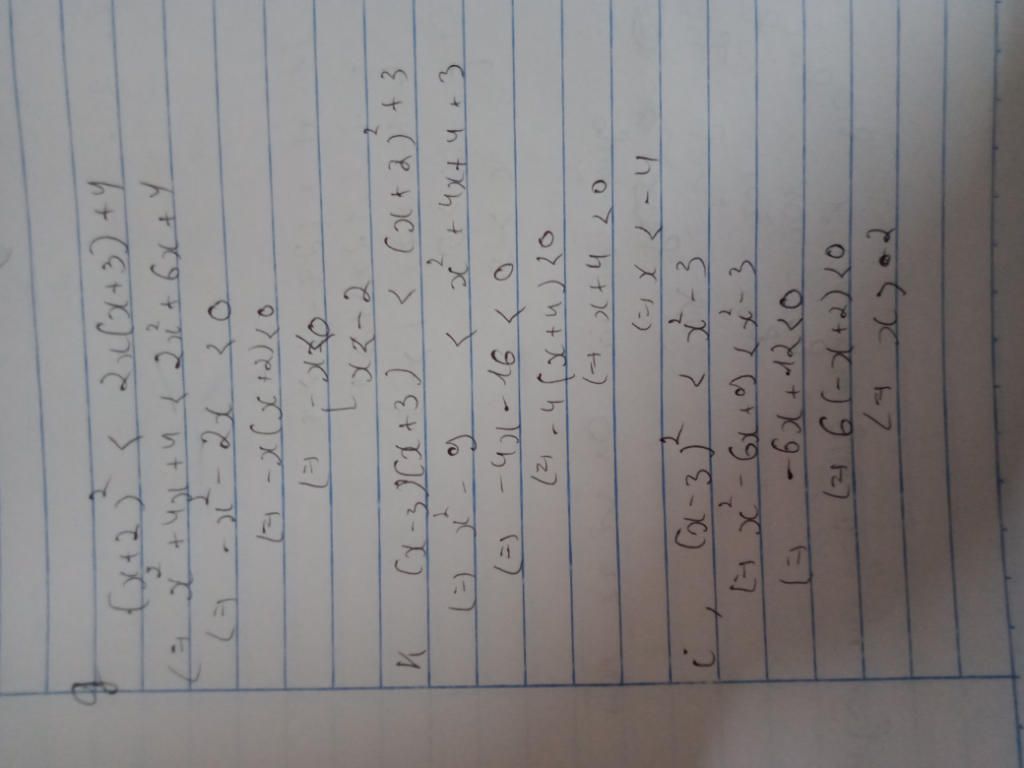 g) (x+2)² < 2x(x+3)+4
(=) x²+4x+4 < 2x²+6x+4
(=) -x²-2x < 0
(=) -x(x+2)<0
(=) [ -x<0
x<-2
K (x-3)(x+3) < (x+2)²+3
(=) x²-9 < x²+4x+4+3
(=) -4x-16 < 0
(=) -4(x+4)<0
(=) x+4 <0
(=) x < -4
i, (x-3)² < x²-3
(=) x²-6x+9) < x²-3
(=) -6x+12<0
(=) 6(-x+2)<0
(=) x > 2